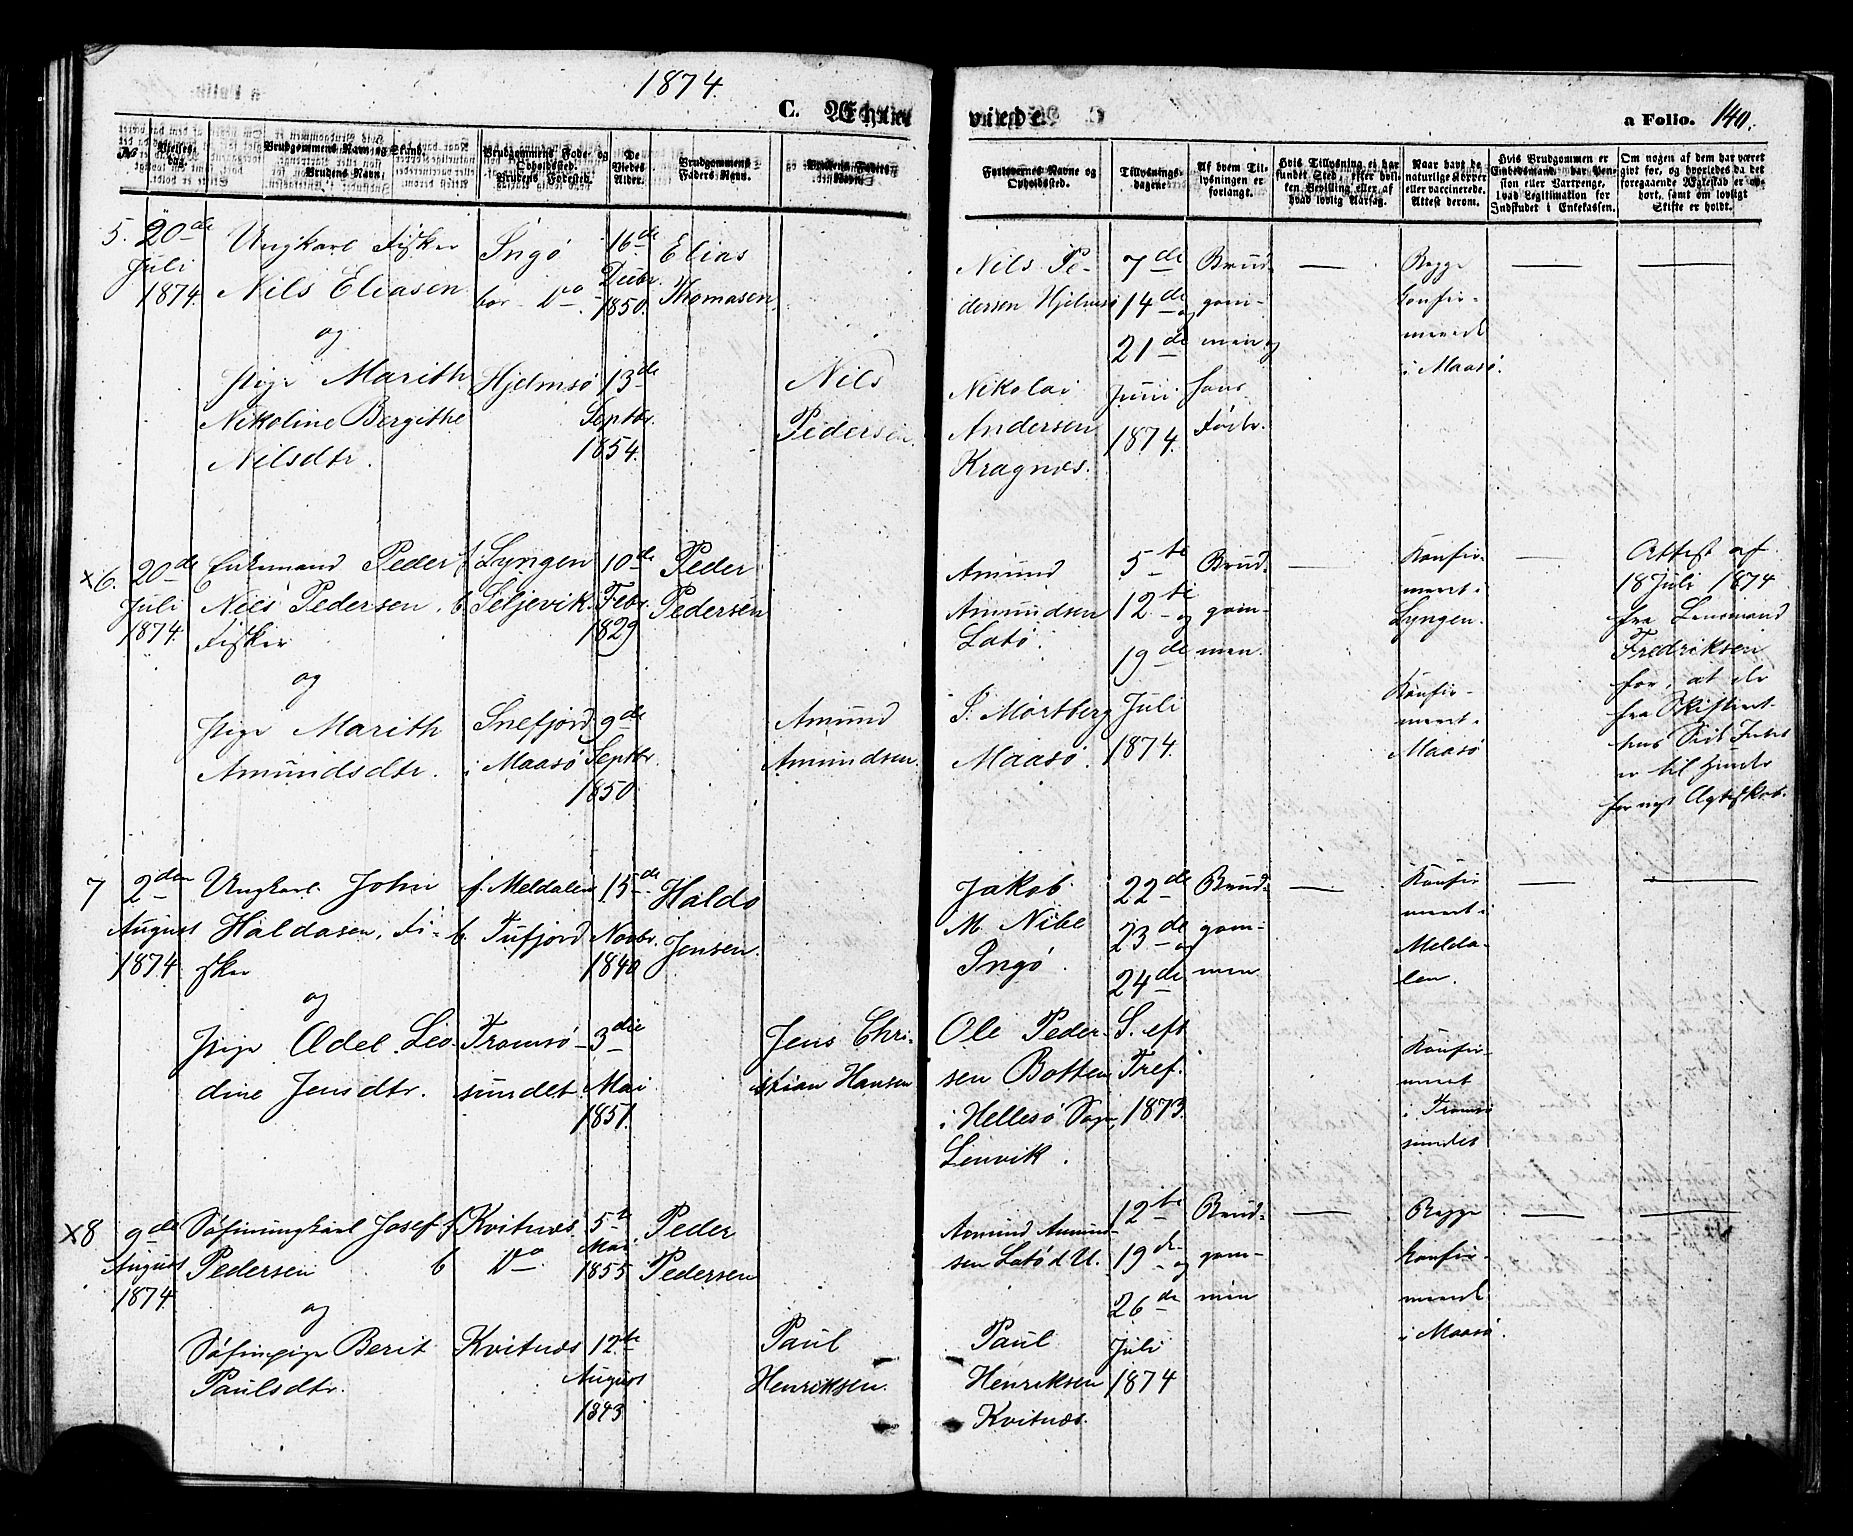 1874.
C. Ægte
viede.
a Folio. 140.
No
Vielses-
dag.
Brudgommens Navn og Stand.
Brudens Navn.
Brudgommens Føde- og
Opholdssted.
Brudens Fødested.
De
Viedes
Alder.
Brudgommens
Faders Navn.
Brudens Faders
Navn.
Forlovernes Navne og
Opholdssted.
Tillysnings-
dagene.
Af hvem Til-
lysningen er
forlangt.
Hvis Tillysning ei har
fundet Sted, efter hvil-
ken Bevilling eller af
hvad lovlig Aarsag.
Naar havt de
naturlige Kopper
eller vaccinerede.
Attest derom.
Hvis Brudgommen er
Embedsmand, har Pen-
sion eller Vartpenge,
hvad Legitimation for
Indskudet i Enkekassen.
Om nogen af dem har været
gift før, og hvorledes da det
foregaaende Ægteskab er op-
hørt, samt om lovligt
Skifte er holdt.
5. 20de
Juli
1874.
Ungkarl Fisker
Nils Eliasen
og
Pige Marith
Nikoline Bergithe
Nilsdtr.
Ingø
bor Do.
Hjelmsø
16de
Decbr.
1850.
13de
Septbr.
1854.
Elias
Thomasen
Nils
Pedersen
Nils Pe-
dersen Hjelmsø
Nikolai
Andersen
Kragnæs.
7de
14de og
21de
Juni
1874.
Brud-
gom-
men og
hans
Forlr.
—
Begge
konfir-
meret
i Maasø.
—
—
x6. 20de
Juli
1874.
Enkemand Peder
Nils Pedersen,
Fisker
og
Pige Marith
Amundsdtr.
f Lyngen
b. Seljevik
Snefjord
i Maasø
10de
Febr.
1829
9de
Septbr.
1850.
Peder
Pedersen
Amund
Amundsen
Amund
Amundsen
Latø.
S. Mørtberg
Maasø.
5te
12te og
19de
Juli
1874.
Brud-
gom-
men.
—
Konfir-
meret i
Lyngen.
Konfir-
meret i
Maasø
—
Attest af
18 Juli 1874
fra Lensmand
Fredriksen
for, at der
fra Skifteret-
tens Side Intet
er til Hinder
for nyt Ægteskab.
7 2den
August
1874
Ungkarl John
Haldosen, Fi-
sker
og
Pige Adel Leo-
dine Jensdtr.
f. Meldalen
b. Tufjord
Tromsø-
sundet
15de
Novbr.
1840
3die
Mai
1851.
Haldo
Jensen
Jens Chri-
stian Hansen
Jakob
M. Nibe
Ingø.
Ole Peder-
sen Botten
i Hellesø Sogn,
Lenvik.
22de
23de og
24de
S. eft
Tref.
1873.
Brud-
gom-
men
—
Konfir-
meret i
Melda-
len.
Konfir-
meret
i Tromsø
sundet
—
—
x8 9de
August
1874
Søfinungkarl Josef
Pedersen
og
Søfinpige Berit
Paulsdtr.
f Kvitnæs
b Do.
Kvitnæs
5te
Mai
1855
12te
August
1843
Peder
Pedersen
Paul
Henriksen.
Amund Amund-
sen Latø d. U.
Paul
Henriksen
Kvitnæs.
12te
19de og
26de
Juli
1874
Brud-
gom-
men
—
Begge
konfir-
meret
i Maasø.
—
—